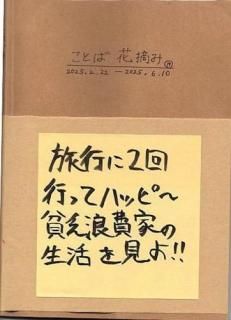 ことば 花摘み⑲
2025.2.22 — 2025.6.10
旅行に2回
行ってハッピ〜
貧乏浪費家の
生活を見よ!!